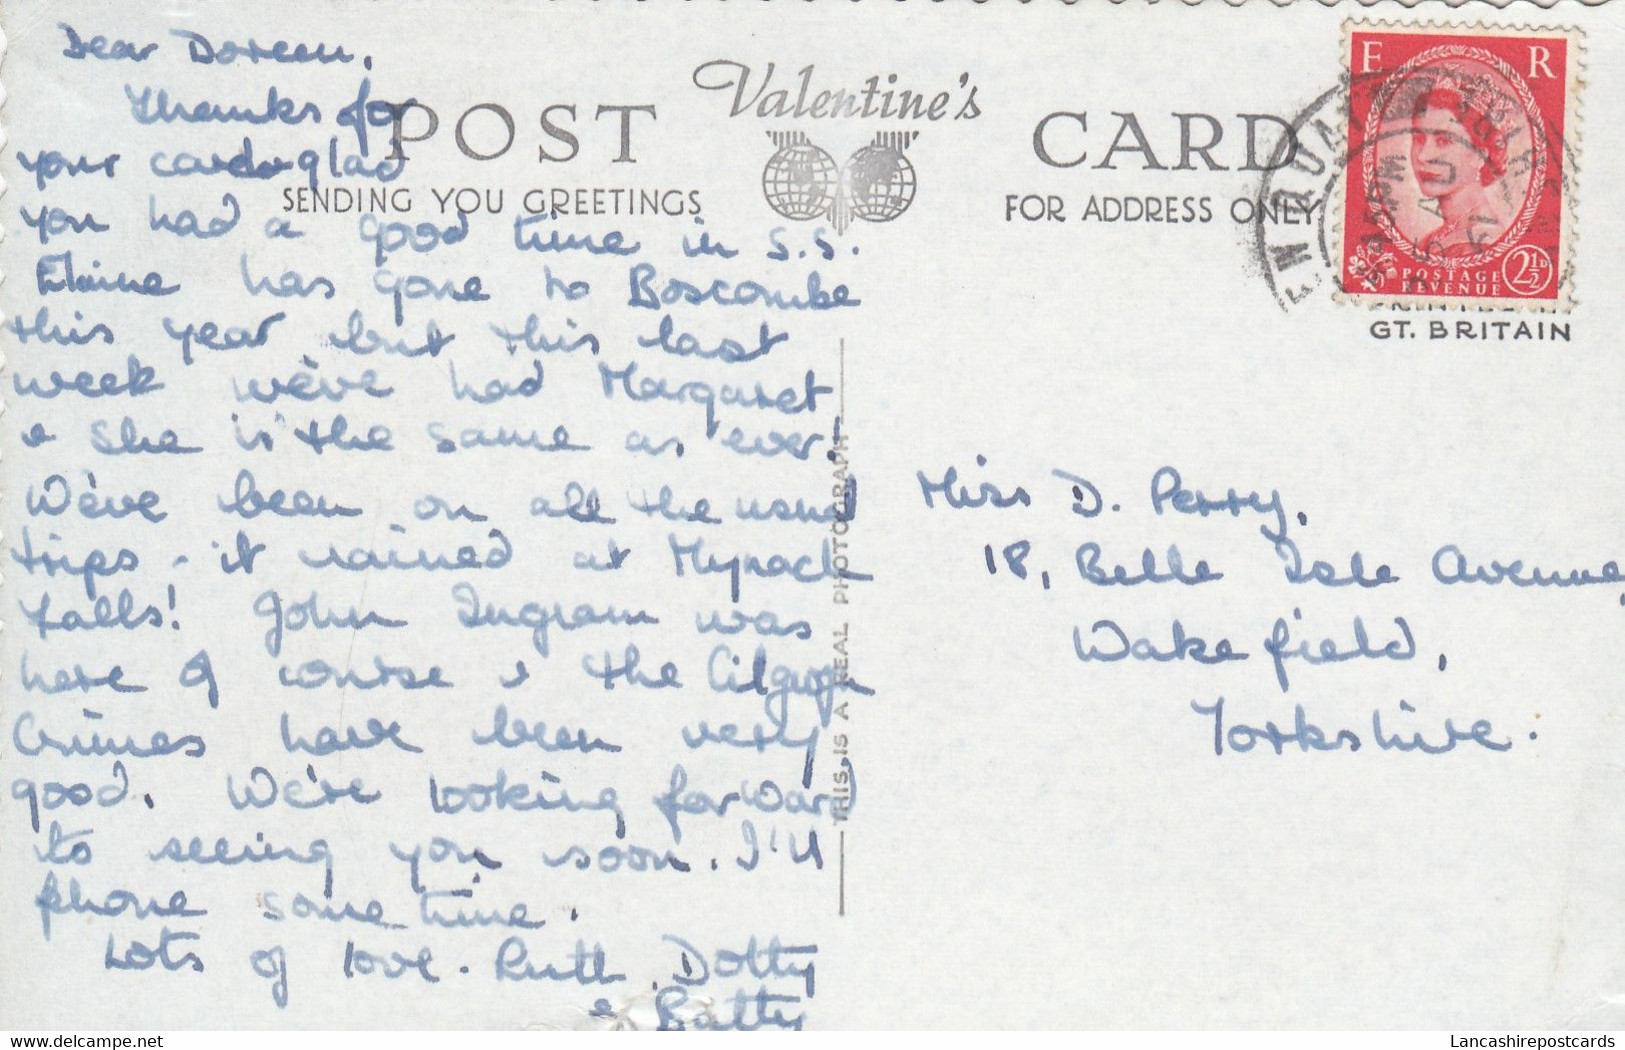 Dear Doreen,
Thanks for
your card & glad
you had a good time in S.S.
Elaine has gone to Boscombe
this year but this last
week we've had Margaret
& she is the same as ever.
We've been on all the usual
trips - it rained at Mynach
Falls! John Ingram was
here of course & the Cilgwyn
Crimes have been very
good. We're looking forward
to seeing you soon. I'll
phone sometime.
Lots of love. Ruth, Dotty
& Batty
POST CARD
Valentine's
SENDING YOU GREETINGS
FOR ADDRESS ONLY
THIS IS A REAL PHOTOGRAPH
E R
POSTAGE
REVENUE
2½D
GT. BRITAIN
Miss D. Perry,
18, Belle Isle Avenue,
Wakefield,
Yorkshire.
Lancashirepostcards